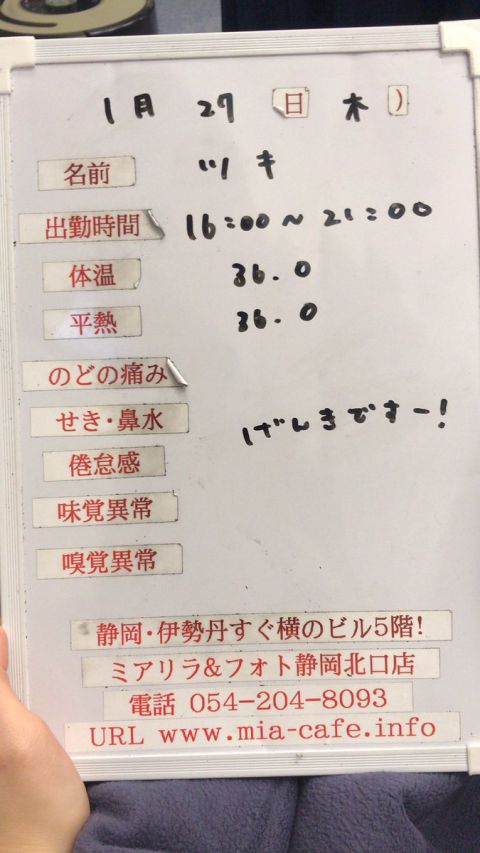 1月 27 日 木 )
名前 ツキ
出勤時間 16:00~21:00
体温 36.0
平熱 36.0
のどの痛み
せき・鼻水 げんきですー!
倦怠感
味覚異常
嗅覚異常
静岡・伊勢丹すぐ横のビル5階!
ミアリラ&フォト静岡北口店
電話 054-204-8093
URL www.mia-cafe.info